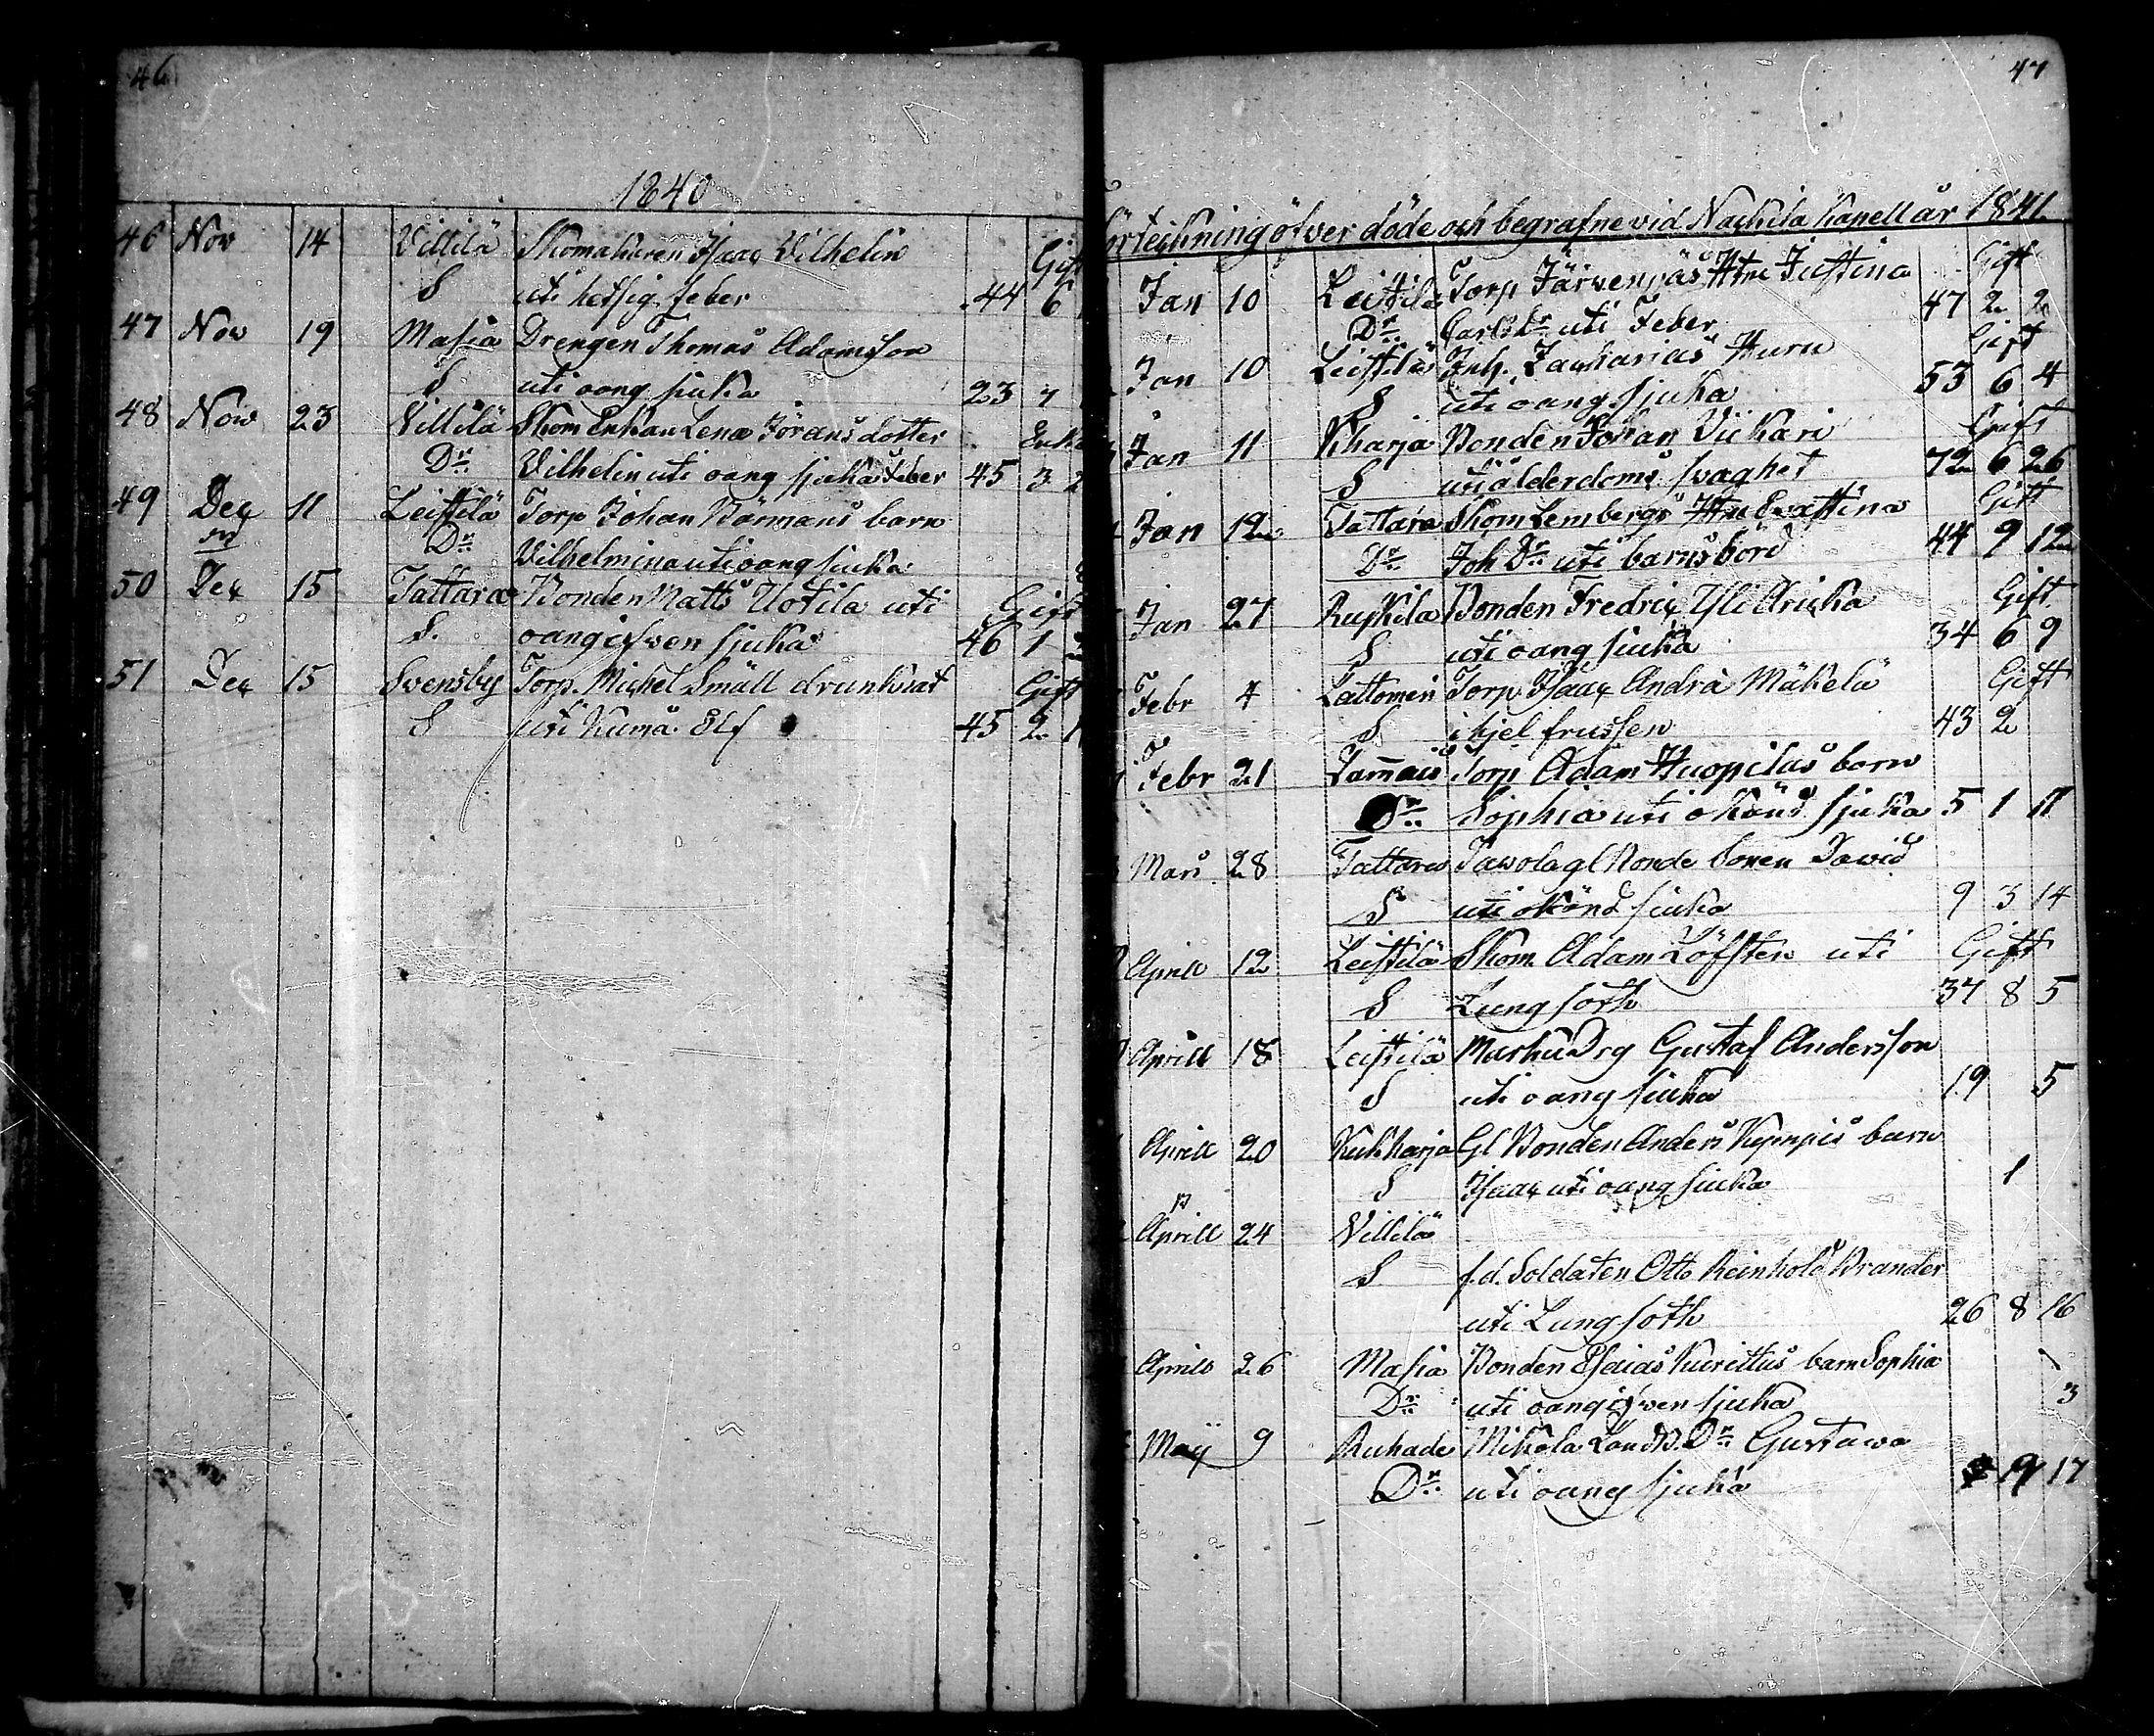 46
1840
46 Nov 14 Villilä Skomakaren Isaac Vilhelin Gift
S uti hetsig feber 44 6
47 Nov 19 Masia Drengen Thomas Adamsson
S uti oang sjuka 23 7
48 Nov 23 Villilä Skom Enkan Lena Jöransdotter Enka
Dr Vilhelin uti oang sjuka Feber 45 3 2
49 Dec 11 Leistilä Torp Johan Börmans barn
Dr Vilhelmina uti oang sjuka
50 Dec 15 Tattara Bonden Matts Uotila uti Gift
S. oangifwen sjuka 46 1
51 Dec 15 Svensby Torp. Michel Småll drunknat Gift
S uti Kumå Elf 45 2
47
Förteckning öfver döde och begrafne vid Nackila Kapell år 1841
Jan 10 Leistilä Torp Järvenpäs Hru Justina Gift
Dr Carls Dr uti Feber 47 2 2
Jan 10 Leistilä Inh. Zacharias Huru Gift
S uti oang sjuka 53 6 4
Jan 11 Kharja Bonden Johan Vickari Gift
S uti ålderdoms svaghet 72 6 26
Jan 12 Tattara Skom Lembergs Hru Evastina Gift
Dr Joh Dr uti barnsbörd 44 9 12
Jan 27 Ruskila Bonden Fredric Yli Aricka Gift
S uti oang sjuka 34 6 9
Febr 4 Lattomeri Torp. Isaac Andrä Mäkelä Gift
S ihjel frussen 43 2
Febr 21 Lammais Torp Adam Huopilas barn
Dr Sophia uti okänd sjuka 5 1 11
Mars 28 Tattara Tawola gl Bonde Sonen David
S uti okänd sjuka 9 3 14
Aprill 12 Leistilä Skom. Adam Löfsten uti Gift
S Lungsoth 37 8 5
Aprill 18 Leistilä Marku Drg Gustaf Andersson
S uti oang sjuka 19 5
Aprill 20 Kukharja Gl Bonden Anders Kympis barn
S Isaac uti oang sjuka 1
Aprill 24 Villilä
S f.d. Soldaten Otto Reinhold Brander
uti Lungsoth 26 8 16
Aprill 26 Masia Bonden Esaias Kurittus barn Sophia
Dr uti oangifwen sjuka 3
Maij 9 Ruhade Mikola LandB. Dr Gustawa
Dr uti oang sjuka 19 17